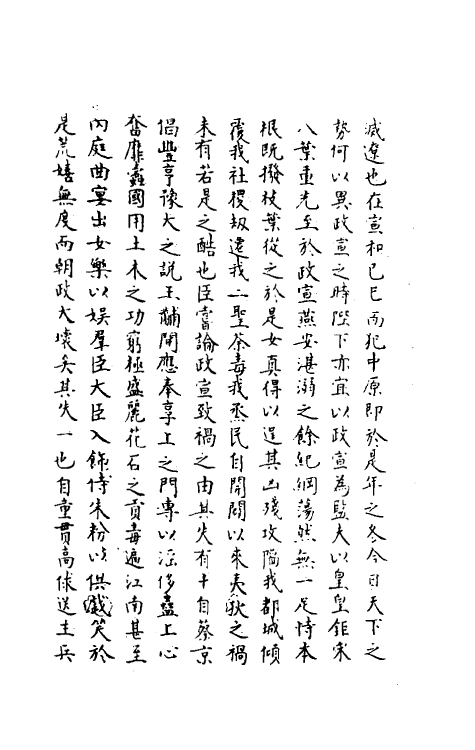 滅遼也在宣和已巳而犯中原即於是年之冬今日天下之
勢何以異政宣之時陛下亦宜以政宣為監夫以皇皇鉅宋
八葉重光至於政宣燕安湛溺之餘紀綱蕩然無一足恃本
根既撥枝葉從之於是女真得以逞其凶殘攻陷我都城傾
覆我社稷刼遷我二聖荼毒我烝民自開闢以來夷狄之禍
未有若是之酷也臣嘗論政宣致禍之由其失有十自蔡京
倡豐亨豫大之說王黼開應奉享上之門專以淫侈蠱上心
奮靡蠹國用土木之功窮極盛麗花石之貢毒遍江南甚至
內庭曲宴出女樂以娱羣臣大臣入餙侍朱粉以供戲笑於
是荒嬉無度而朝政大壞矣其失一也自童貫高俅迭主兵